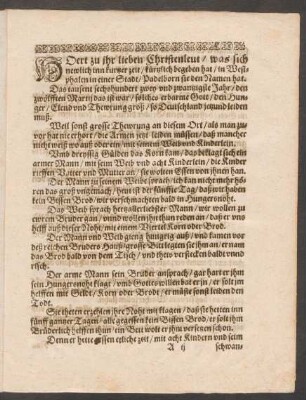 HOert zu jhr lieben Christenleut / was sich
newlich inn kurtzer zeit / kürtzlich begeben hat / in West-
phalen in einer Statt / Padelborn sie den Namen hat.
Das tausent sechshundert zwey vnd zwantzigste Jahr / den
zwölfften Martij das ist war / solches erbarme Gott / den Hun-
ger / Elend vnd Thewrung groß / so Deutschland jetzund leiden
muß.
Weil sonst grosse Thewrung an diesem Ort / als man zu-
vor hat nie erhört / die Armen jetzt leiden müssen / daß mancher
nicht weiß wo auß oder ein / mit seinem Weib vnd Kinderlein.
Vmb dreyssig Gülden das Korn kam / das beklagt sich ein
armer Mann / mit seim Weib vnd acht Kinderlein / die Kinder
rieffen Vatter vnd Mutter an / sie wolten Essen von jhnen han.
Der Mann zu seinem Weibe sprach / ich kan nicht mehr sehen
das groß vngemach / heut ist der fünffte Tag / daß wir haben
kein Bissen Brod / wir verschmachten bald in Hungersnoht.
Das Weib sprach hertzallerliebster Mann / wir wollen zu
ewrem Bruder gan / vnnd wollen jhn thun reden an / daß er vns
helff auß dieser Noht / mit einem Viertel Korn oder Brod.
Der Mann vnd Weib gieng hungrig auß / vnd kamen vor
deß reichen Bruders Hauß / grosse Bitt legten sie jhm an / er nam
das Brod bald von dem Tisch / vnd thets verstecken baldt vnnd
risch.
Der arme Mann sein Bruder ansprach / gar hart er jhm
sein Hungersnoht klagt / vnd Gottes willen bat er jn / er solt jm
helffen mit Geldt / Korn oder Brod / er müste sonst leiden den
Todt.
Sie theten erzehlen jhre Noht mit klagen / daß sie hetten inn
fünff gantzer Tagen / alle gegessen kein Bissen Brod / er solt jhn
Brüderlich helffen jhm / ein Bett wolt er jhm versetzen schon.
Denn er hette essen etliche zeit / mit acht Kindern vnd seim
A ij schwan-